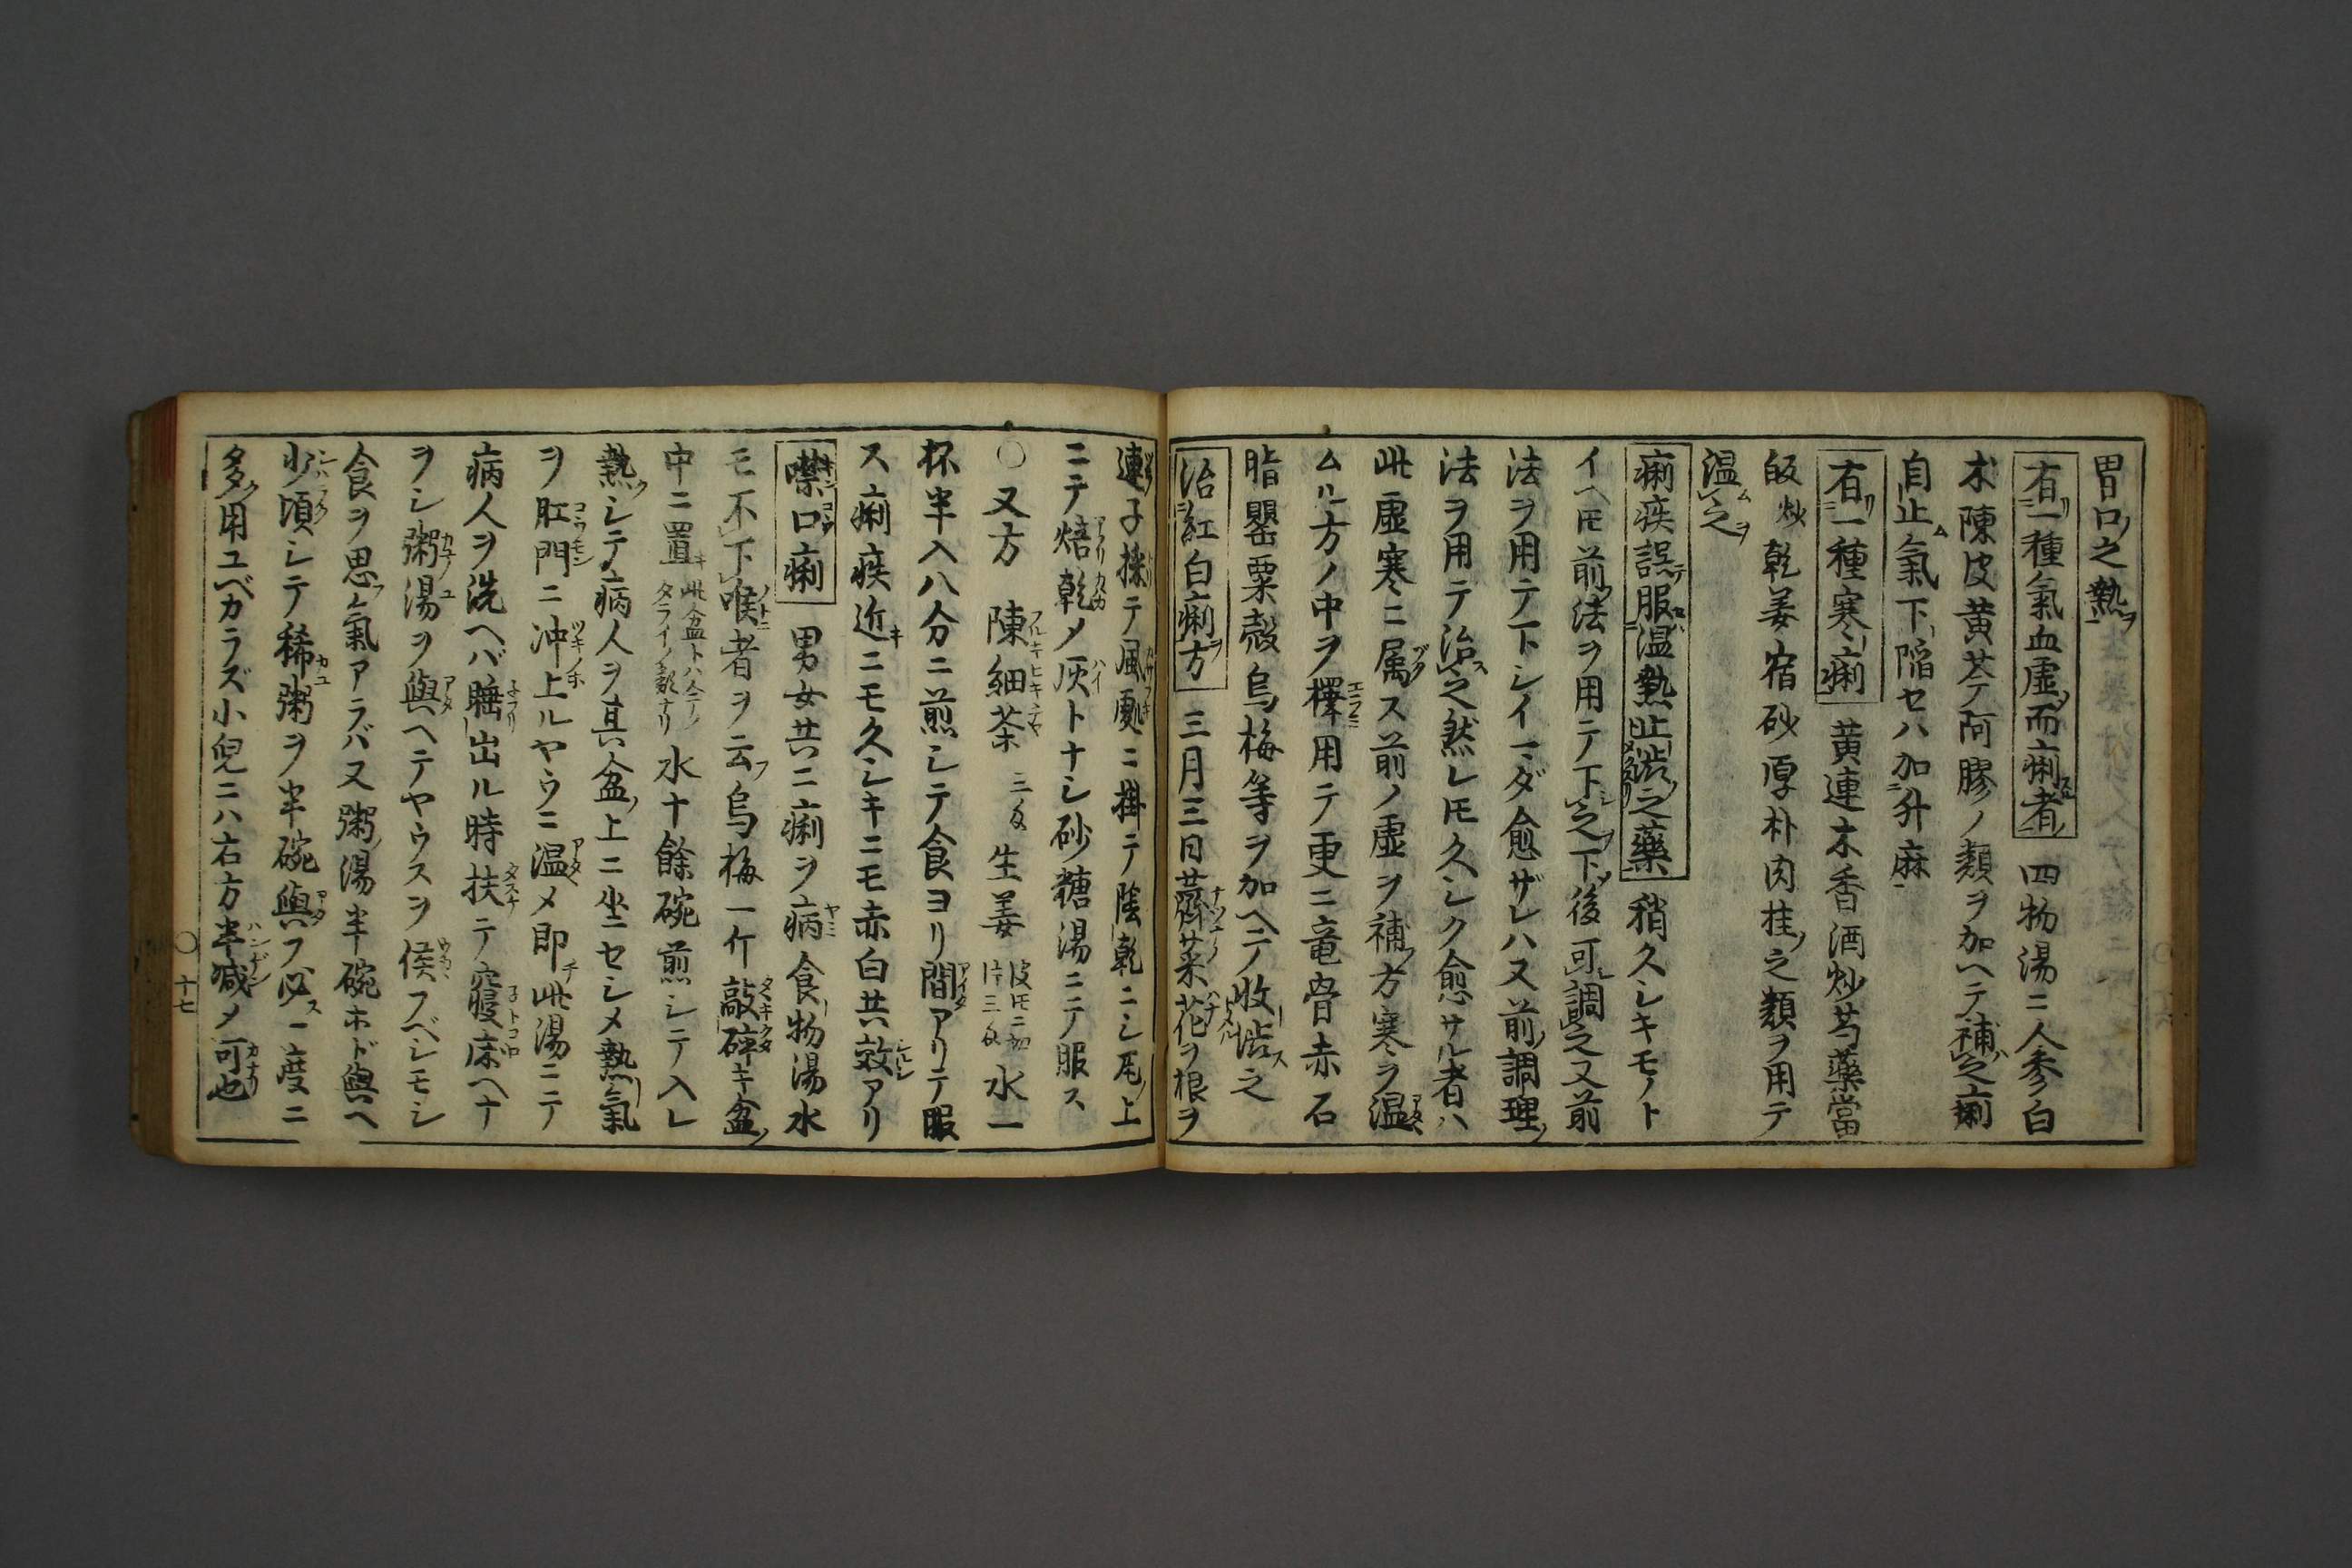 胃口之熱
有一種氣血虚而痢者 四物湯ニ人参白
朮陳皮黄芩阿膠ノ類ヲ加ヘテ補之痢
自止氣下陥セハ加升麻
有一種寒痢 黄連木香酒炒芍藥當
皈炒乾姜宿砂厚朴肉桂之類ヲ用テ
温之
痢疾誤服温熱止澁之藥 稍久シキモノト
イヘ𪜈前法ヲ用テ下之下後可調之又前
法ヲ用テ下シイマダ愈ザレハ又前調理
法ヲ用テ治之然レ𪜈久シク愈サル者ハ
此虚寒ニ属ス前ノ虚ヲ補方寒ヲ温
ムル方ノ中ヲ擇用テ更ニ竜骨赤石
脂罌粟殻烏梅等ヲ加ヘテ收澁之
治紅白痢方 三月三日薺菜花ヲ根ヲ
連子採テ風處ニ掛テ陰乾ニシ瓦上
ニテ焙乾メ灰トナシ砂糖湯ニテ服ス
○又方 陳細茶 三匁 生姜 皮𪜈ニ加片三匁 水一
杯半入八分ニ煎シテ食ヨリ間アリテ服
ス痢疾近ニモ久シキニモ赤白共效アリ
噤口痢 男女共ニ痢ヲ病食物湯水
モ不下喉者ヲ云烏梅一斤敲碎キ盆
中ニ置 此盆トハ今ノタライノ類ナリ 水十餘碗煎シテ入レ
熱シテ病人ヲ其盆上ニ坐セシメ熱氣
ヲ肛門ニ冲上ルヤウニ温メ即此湯ニテ
病人ヲ洗ヘバ睡出ル時扶テ寢床ヘナ
ヲシ粥湯ヲ與ヘテヤウスヲ候フベシモシ
食ヲ思氣アラバ又粥湯半碗ホド與ヘ
少頃シテ稀粥ヲ半碗與フ必一度ニ
多用ユベカラズ小兒ニハ右方半減メ可也
○十七